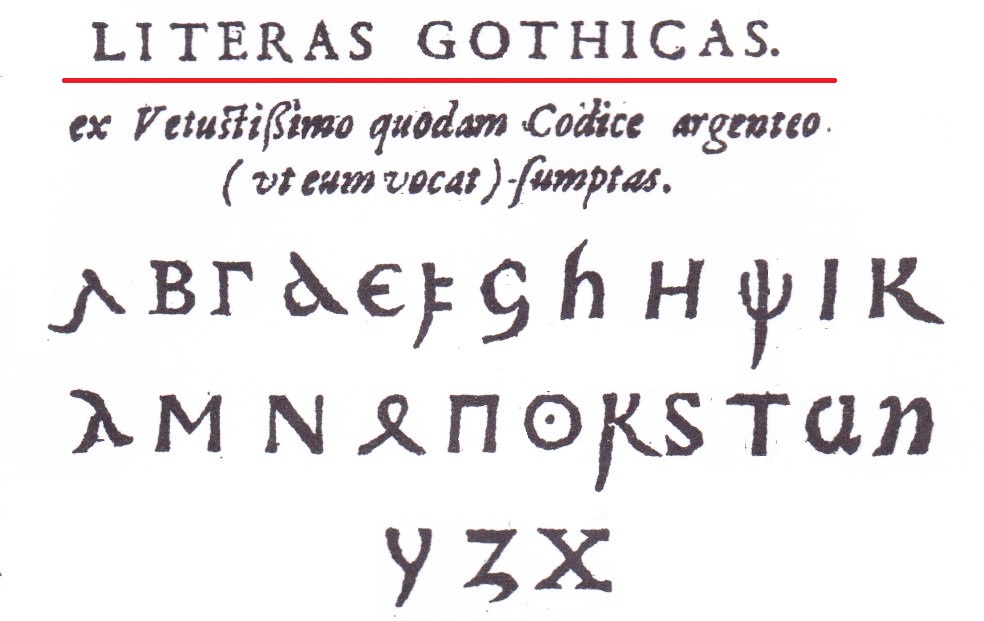 LITERAS GOTHICAS.
ex Vetustißimo quodam Codice argenteo.
( vt eum vocat ) ſumptas.
𐌰 𐌱 𐌲 𐌳 𐌴 𐍆 𐌾 𐌷 H 𐌸 𐌹 𐌺
𐌻 𐌼 𐌽 𐍉 𐍀 𐍈 𐍂 𐍃 𐍄 𐌵 𐌿
𐍅 𐌶 𐍇